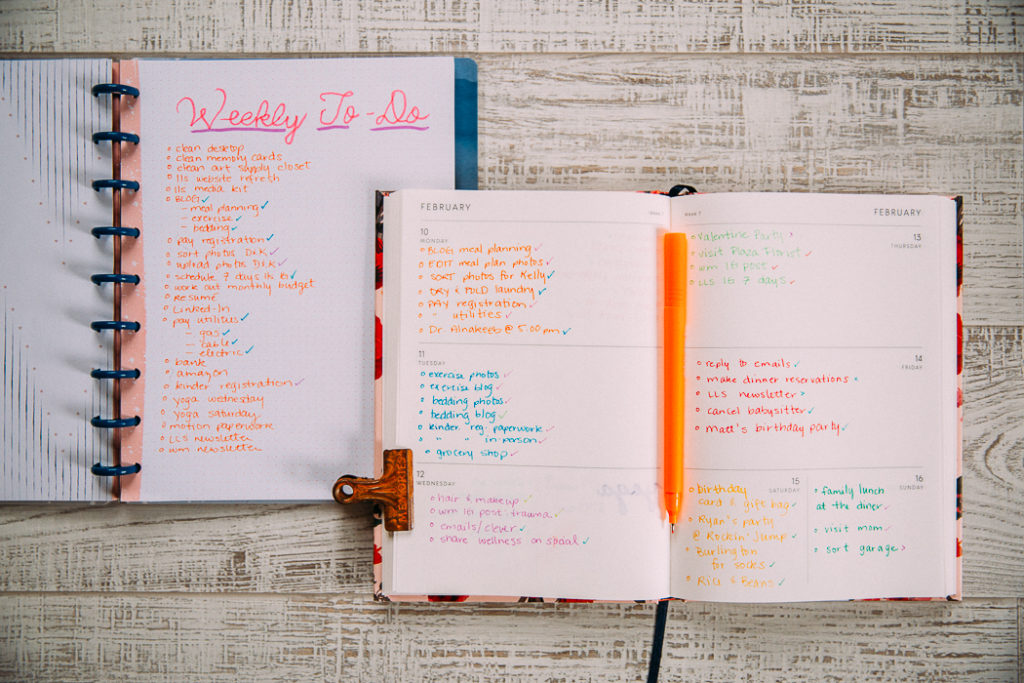 Weekly To-Do
clean desktop
clean memory cards
clean art supply closet
lls website refresh
lls media kit
BLOG ✓
- meal planning ✓
- exercise ✓
- bedding ✓
pay registration ✓
sort photos DxK ✓
upload photos DxK ✓
schedule 7 days
work out monthly budget
resumé
Linked-In
pay utilities ✓
- gas ✓
- cable ✓
- electric ✓
bank
amazon
kinder registration ✓
yoga wednesday
yoga saturday
motion paperwork
LLS newsletter
wm newsletter
MEMORIES
FEBRUARY
WEEK 7
10
MONDAY
BLOG meal planning ✓
EDIT meal plan photos ✓
SORT photos for Kelly ✓
DRY & FOLD laundry ✓
PAY registration ✓
" utilities ✓
Dr. Alnakeeb @ 5:00 pm ✓
11
TUESDAY
exercise photos ✓
exercise blog ✓
bedding photos ✓
bedding blog ✓
kinder reg. paperwork ✓
" " in-person ✓
grocery shop ✓
12
WEDNESDAY
hair & makeup ✓
wm IG post trauma ✓
emails/clever ✓
share wellness on social ✓
WEEK 7
FEBRUARY
13
THURSDAY
Valentine Party >
visit Plaza Florist ✓
wm IG post ✓
LLS IG 7 days ✓
14
FRIDAY
reply to emails ✓
make dinner reservations ×
LLS newsletter >
cancel babysitter ✓
Matt's birthday party ✓
15
SATURDAY
birthday
card & gift bag ✓
Ryan's party
@ Rockin' Jump ✓
Burlington
for socks ✓
Rice & Beans ✓
16
SUNDAY
family lunch
at the diner ✓
visit mom ✓
sort garage >